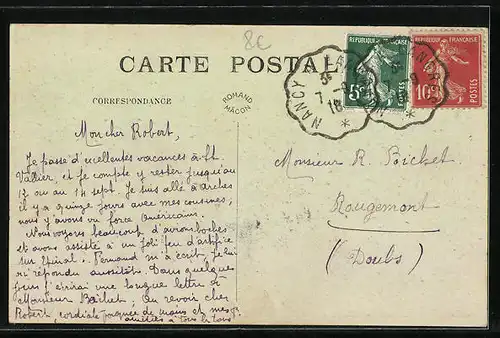 8€
CARTE POSTALE
CORRESPONDANCE
ROMAND
MACON
REPUBLIQUE FRANCAISE
5c
POSTES
REPUBLIQUE FRANCAISE
10c
POSTES
NANCY A
7 - 9
18
Mon cher Robert,
Je passe d'excellentes vacances à St.
Vallier, et je compte y rester jusqu'au
12 ou au 14 sept. Je suis allé à Arches
il y a quinze jours avec mes cousines;
nous y avons vu force Américains.
Nous voyons beaucoup d'avions boches
et avons assisté à un joli feu d'artifice
sur Epinal. Fernand m'a écrit, je lui
ai répondu aussitôt. Dans quelques
jours j'écrirai une longue lettre à
Monsieur Bichet; Au revoir cher
Robert, cordiale poignée de mains et mes
amitiés à tous
Monsieur R. Bichet.
Rougemont
(Doubs)